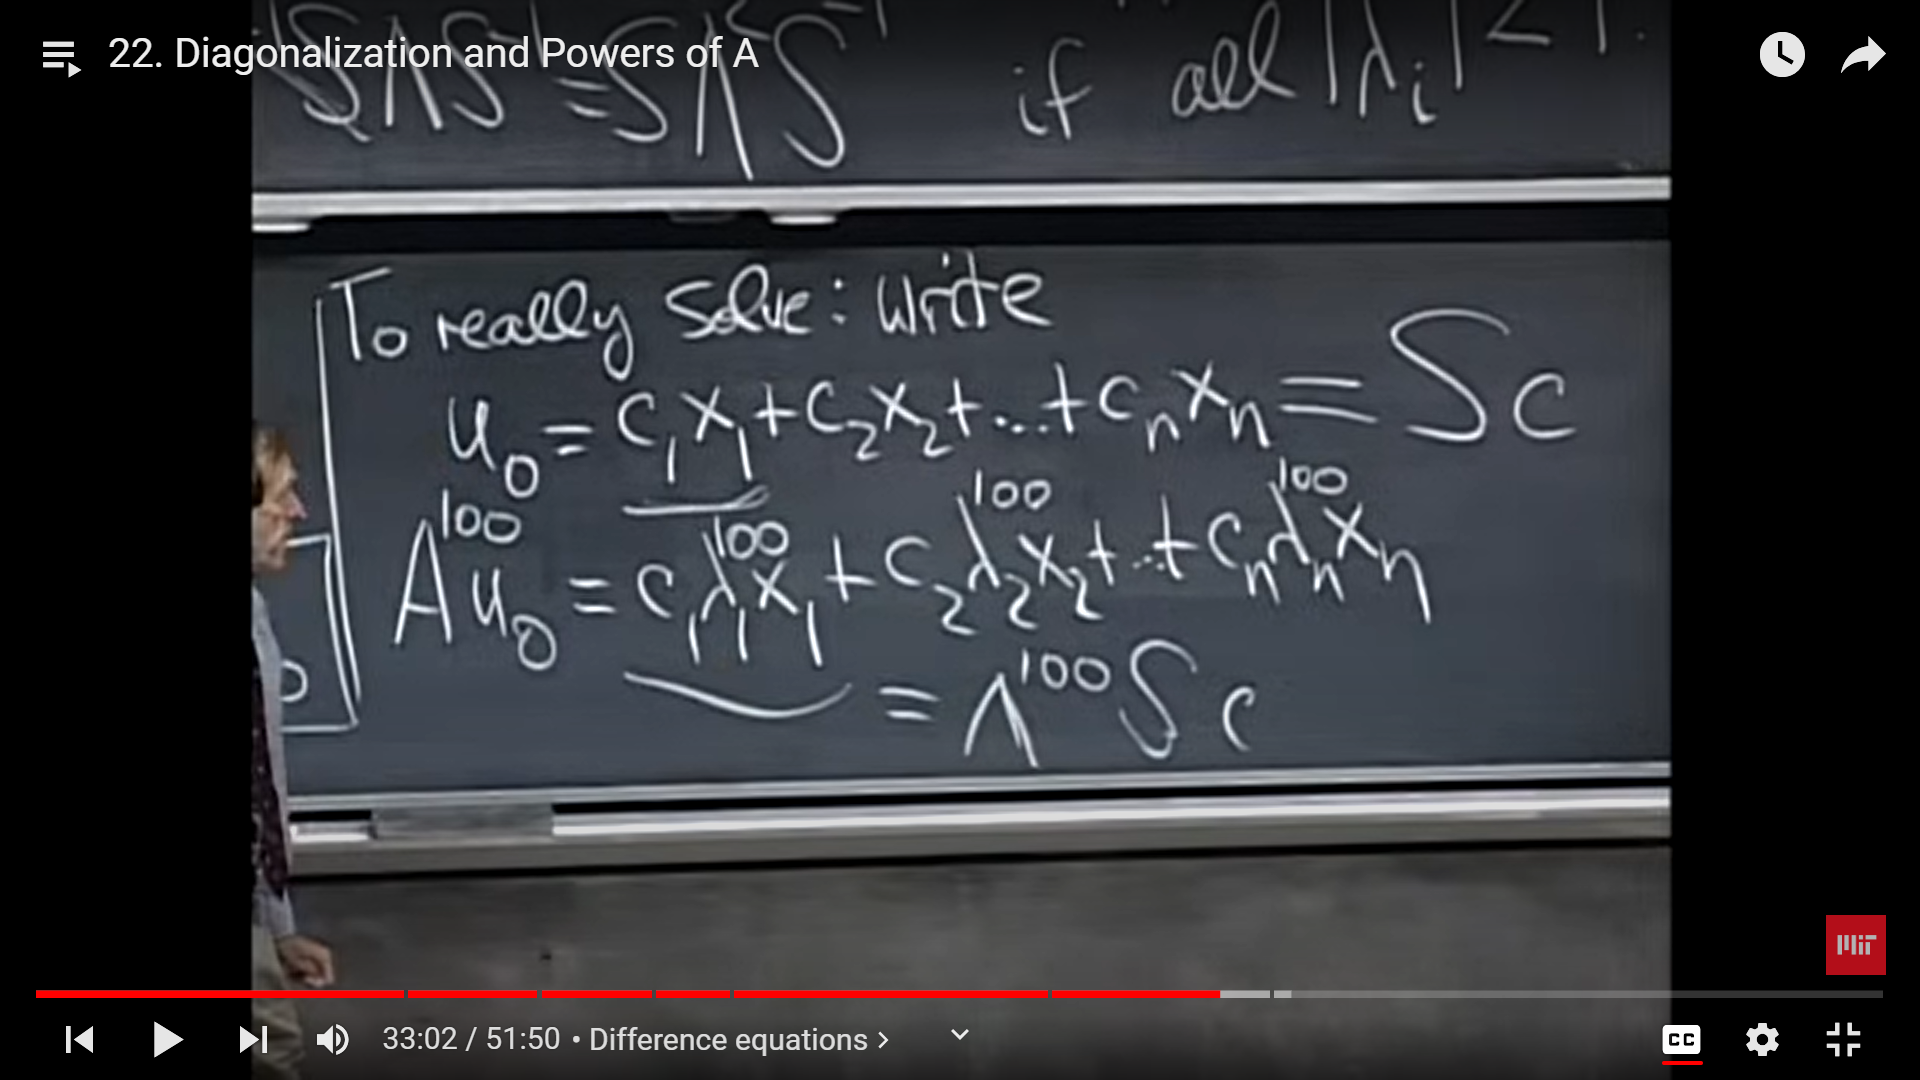 22. Diagonalization and Powers of A
SΛS⁻¹ = SΛ S⁻¹ if all |λᵢ| < 1.
To really solve: write
u₀ = c₁x₁ + c₂x₂ + ... + cₙxₙ = Sc
A¹⁰⁰u₀ = c₁λ₁¹⁰⁰x₁ + c₂λ₂¹⁰⁰x₂ + ... + cₙλₙ¹⁰⁰xₙ
= Λ¹⁰⁰Sc
MiT
33:02 / 51:50 • Difference equations >
CC